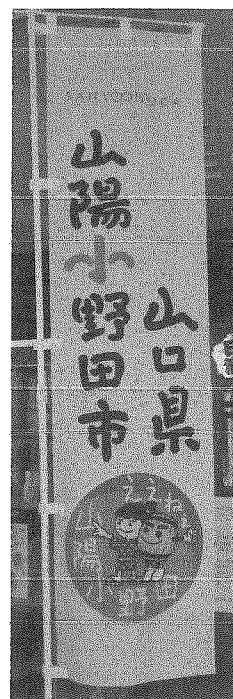 山口県
山陽小野田市
ええね〜
山陽小野田